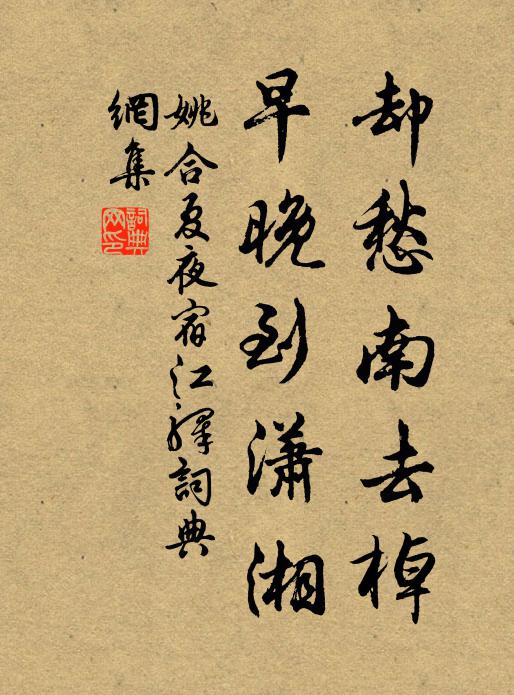 却愁南去棹
早晚到潇湘
姚合夏夜宿江驛詞典
網集
詞典
网印